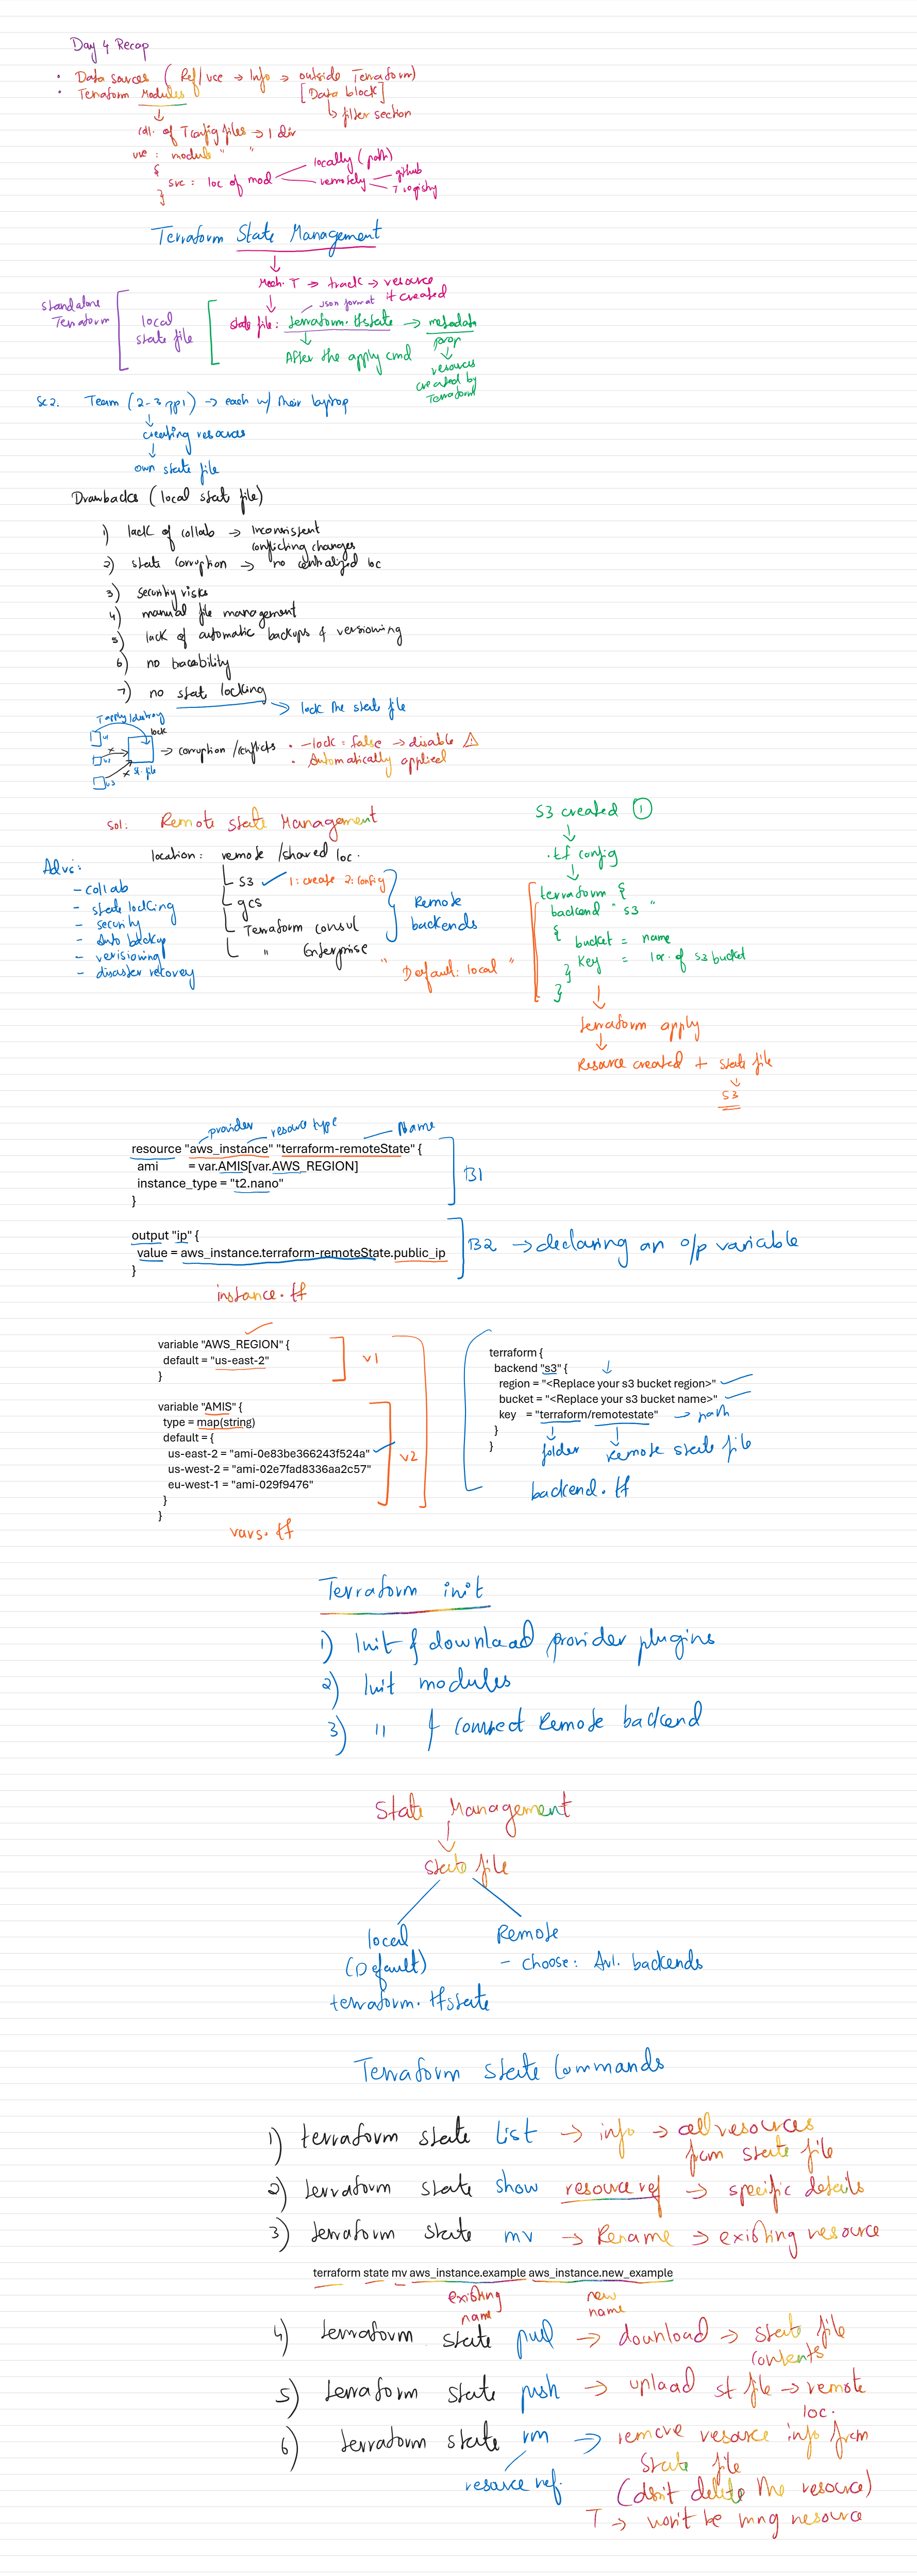 Day 4 Recap
• Data sources ( Ref/use → Info → outside Terraform)
• Terraform Modules
[Data block]
↳ filter section
coll. of Tconfig files → 1 dir
use : module " "
{
src : loc of mod
}
locally (path)
remotely
github
T registry
Terraform State Management
Mech. T → track → resource it created
standalone Terraform
local state file
state file : terraform.tfstate → metadata
Json format
prop
After the apply cmd
resources created by Terraform
Sc 2. Team (2-3 ppl) → each w/ their laptop
creating resources
own state file
Drawbacks (local state file)
1) lack of collab → Inconsistent conflicting changes
2) state corruption → no centralized loc
3) security risks
4) manual file management
5) lack of automatic backups & versioning
6) no tracability
7) no state locking
→ lock the state file
T apply/destroy
lock
u1
u2
u3
st. file
→ corruption /conflicts
• -lock = false → disable ⚠
• Automatically applied
Sol: Remote State Management
location : remote /shared loc.
S3 ✓ 1: create 2: config
gcs
Terraform consul
" Enterprise
Remote backends
" Default: local "
Advs:
- collab
- state locking
- security
- Auto backup
- verisioning
- disaster recovey
S3 created ①
.tf config
terraform {
backend " s3 "
{
bucket = name
key = loc. of s3 bucket
}
}
terraform apply
Resource created + state file
S3
provider
resource type
Name
resource "aws_instance" "terraform-remoteState" {
ami = var.AMIS[var.AWS_REGION]
instance_type = "t2.nano"
}
B1
output "ip" {
value = aws_instance.terraform-remoteState.public_ip
}
B2 → declaring an o/p variable
instance.tf
variable "AWS_REGION" {
default = "us-east-2"
}
v1
variable "AMIS" {
type = map(string)
default = {
us-east-2 = "ami-0e83be366243f524a"
us-west-2 = "ami-02e7fad8336aa2c57"
eu-west-1 = "ami-029f9476"
}
}
v2
vars.tf
terraform {
backend "s3" {
region = "<Replace your s3 bucket region>"
bucket = "<Replace your s3 bucket name>"
key = "terraform/remotestate"
}
}
→ path
folder
remote state file
backend.tf
Terraform init
1) Init & download provider plugins
2) Init modules
3) 11 & connect Remote backend
State Management
State file
local
(Default)
terraform.tfstate
Remote
- choose: Avl. backends
Terraform state Commands
1) terraform state list → info → all resources from state file
2) terraform state show resource ref → specific details
3) terraform state mv → Rename → existing resource
terraform state mv aws_instance.example aws_instance.new_example
existing name
new name
4) terraform state pull → download → state file contents
5) terraform state push → upload st file → remote loc.
6) terraform state rm → remove resource info from state file
resource ref.
(don't delete the resource)
T → won't be mng resource